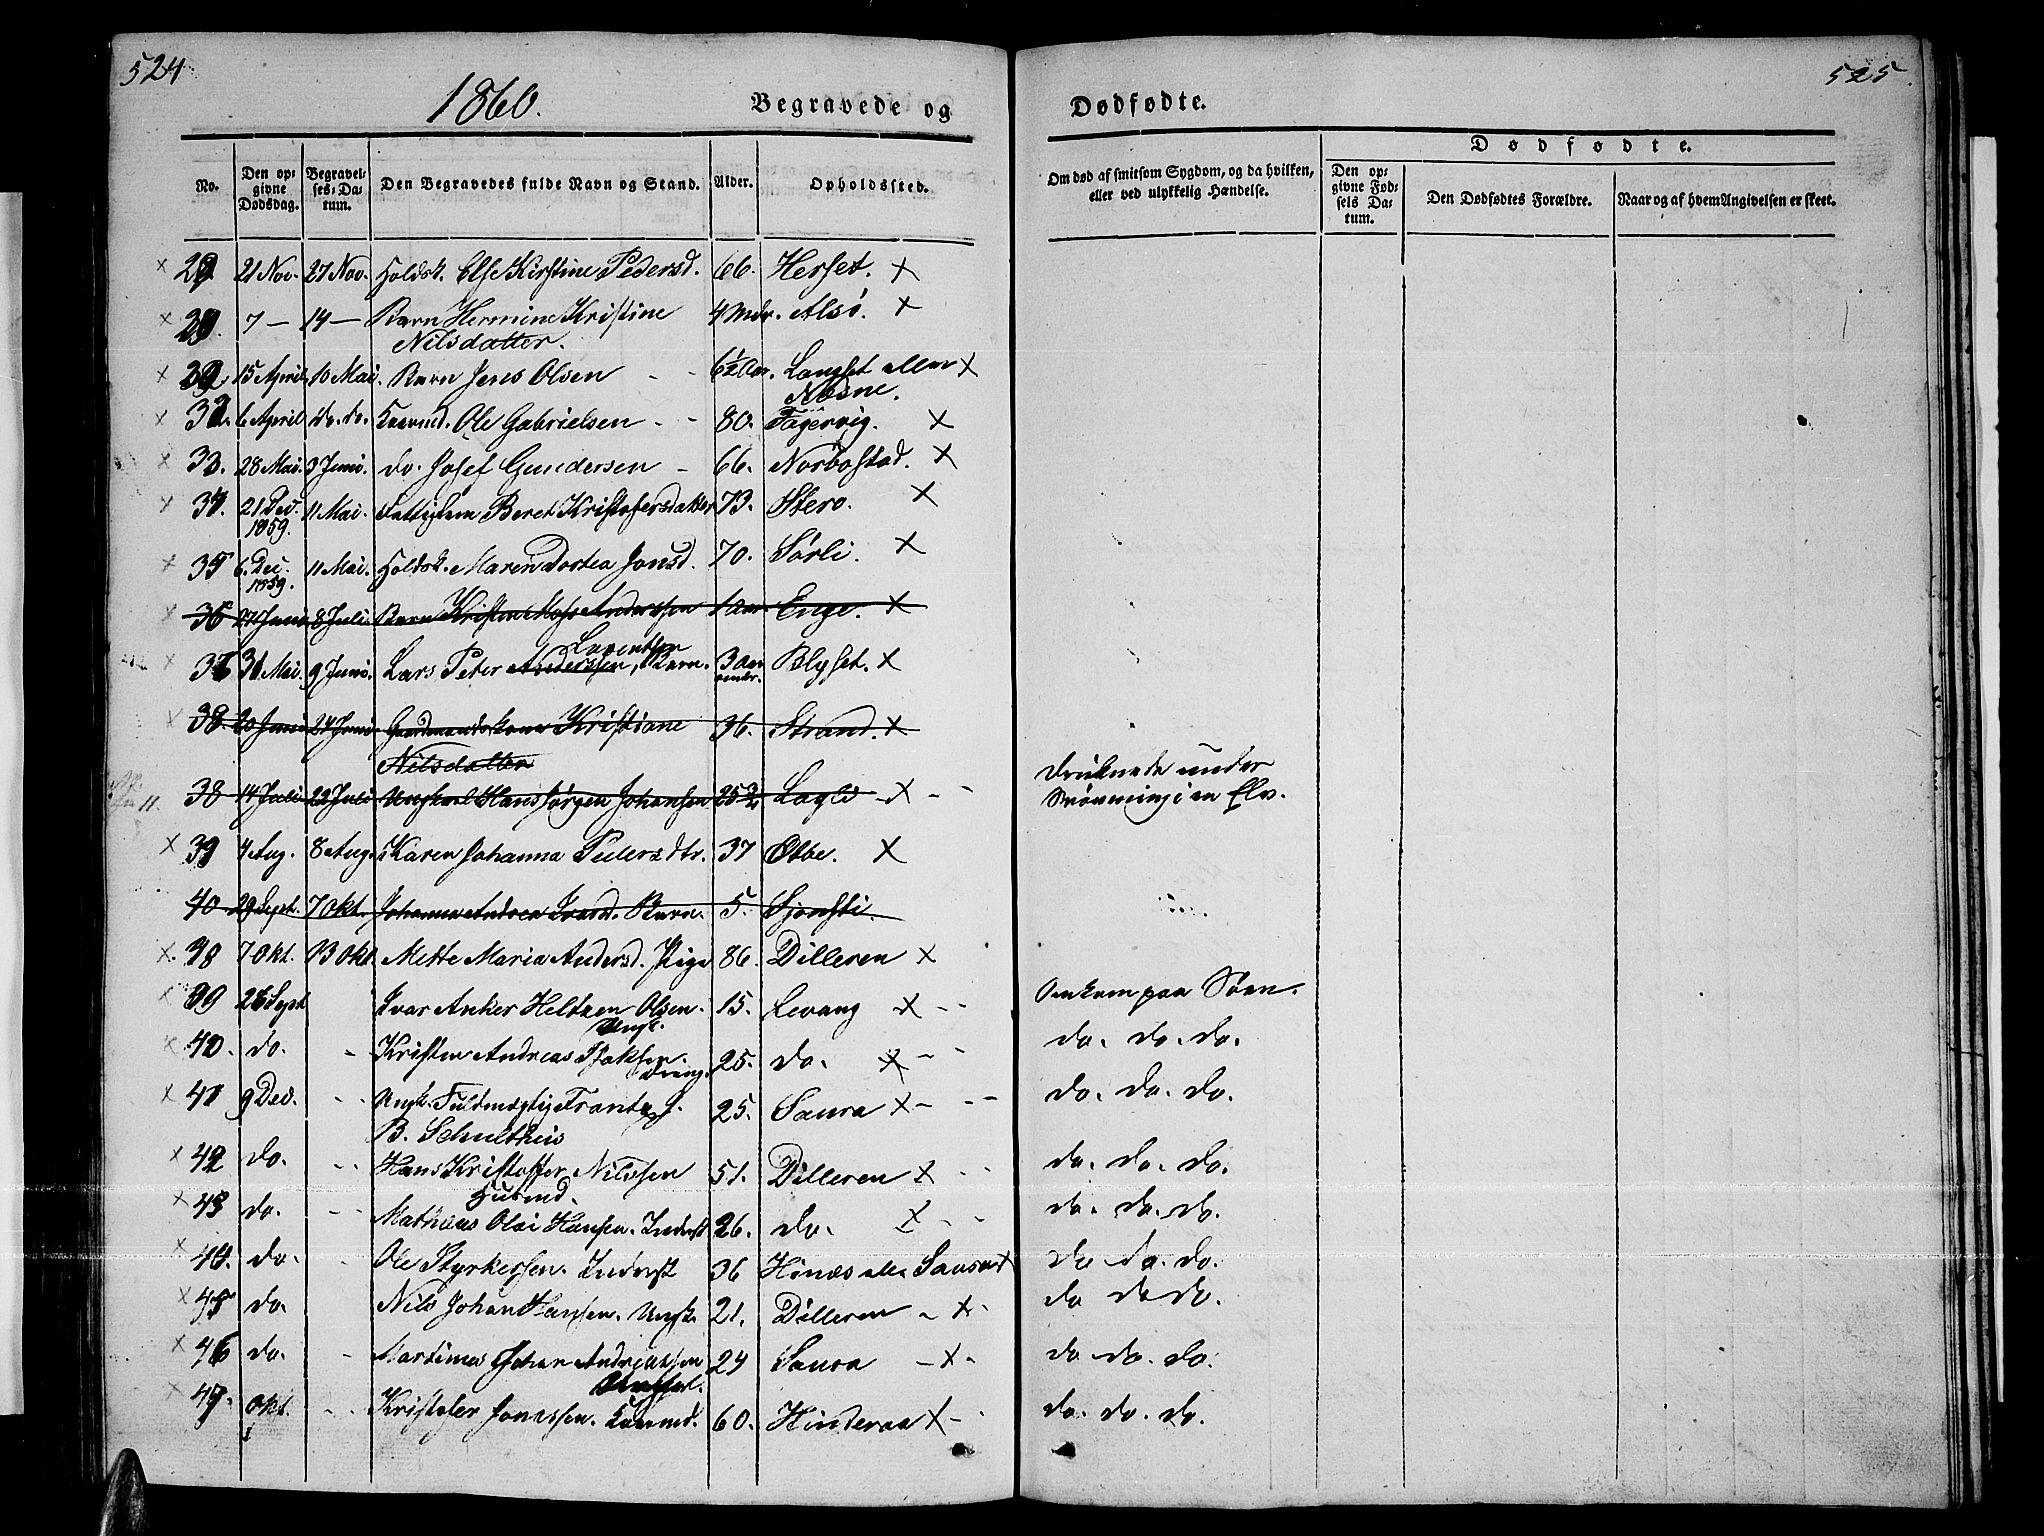 524
525.
1860.
Begravede og
Dødfødte.
No.
Den opgivne Dødsdag.
Begravelses-Datum.
Den Begravedes fulde Navn og Stand.
Alder.
Opholdssted.
Om død af smitsom Sygdom, og da hvilken, eller ved ulykkelig Hændelse.
Dødfødte.
Den opgivne Fødsels Datum.
Den Dødfødtes Forældre.
Naar og af hvem Angivelsen er skeet.
21 Nov. 27 Nov. Else Kirstine Pedersd. 66. Herset. X
7 — 14 — Barn Hermine Kristine 4 Mdr. Alsø. X
Nilsdatter.
15 April 10 Mai. Barn Jens Olsen - - 6½ Aar. Langset eller X
Næsne.
6 April do. do. Ole Gabrielsen - - 80. Fagervig. X
33. 28 Mai. 3 Juni. do. Josef Gundersen - 66. Norbostad. X
34. 21 Dec. 1859. 11 Mai. Fattiglem Beret Kristofersdatter 73. Stero. X
35 6. Dec. 1859. 11 Mai. Maren Dortea Jonsd. 70. Sørli. X
36 27 Juni 8 Juli Barn Kristen Anderssen 1 Aar Enge. X
Laventsen
31 Mai. 9 Juni. Lars Peter Anderssen, Barn. 3 Aar Blyset. X
38. 20 Juni 24 Juni Kristiane 36. Strand. X
Nilsdatter
38 14 Juli 22 Juli Ungkarl Hans Jørgen Johansen 25 Lagli - X - -
Druknede under
Svømning i en Elv.
39 4 Aug. 8 Aug. Karen Johanna Pedersdtr. 37 Ebbe. X
40 29 Sept. 7 Okt. Johanna Andrea Barn. 5. Sjonsti.
38 7 Okt. 13 Okt. Mette Maria Andersd. Pige 86. Dilleren X
39 26 Sept Ivar Anker Heltzen Olsen. 15. Levang X - - Omkom paa Søen.
Ungk.
40. do. - Kristen Andreas 25. do. X - - do. do. do.
Dreng.
41 9 Dec. - - Ungk. Fuldmægtig Frantz J. 25. Saura X - - - do. do. do.
B. Schultheis
42 do. - - Hans Kristoffer Nilssen 51. Dilleren X - - do. do. do.
Husmd.
43 do. - - Mathias Olai Hansen. Inderst 26. do. X - - do. do. do.
44. do. - Ole Styrkerssen. Inderst 36 Saura X do do. do.
45 do. Nils Johan Hansen. Ungk. 21. Dilleren - X - do do do.
46 do. - Martinus Johan Andreassen 24 Saura - X - do do. do.
Ungkarl.
47. Okt. - - Kristofer Jonassen. 60. Hinderaa X - - do. do. do.